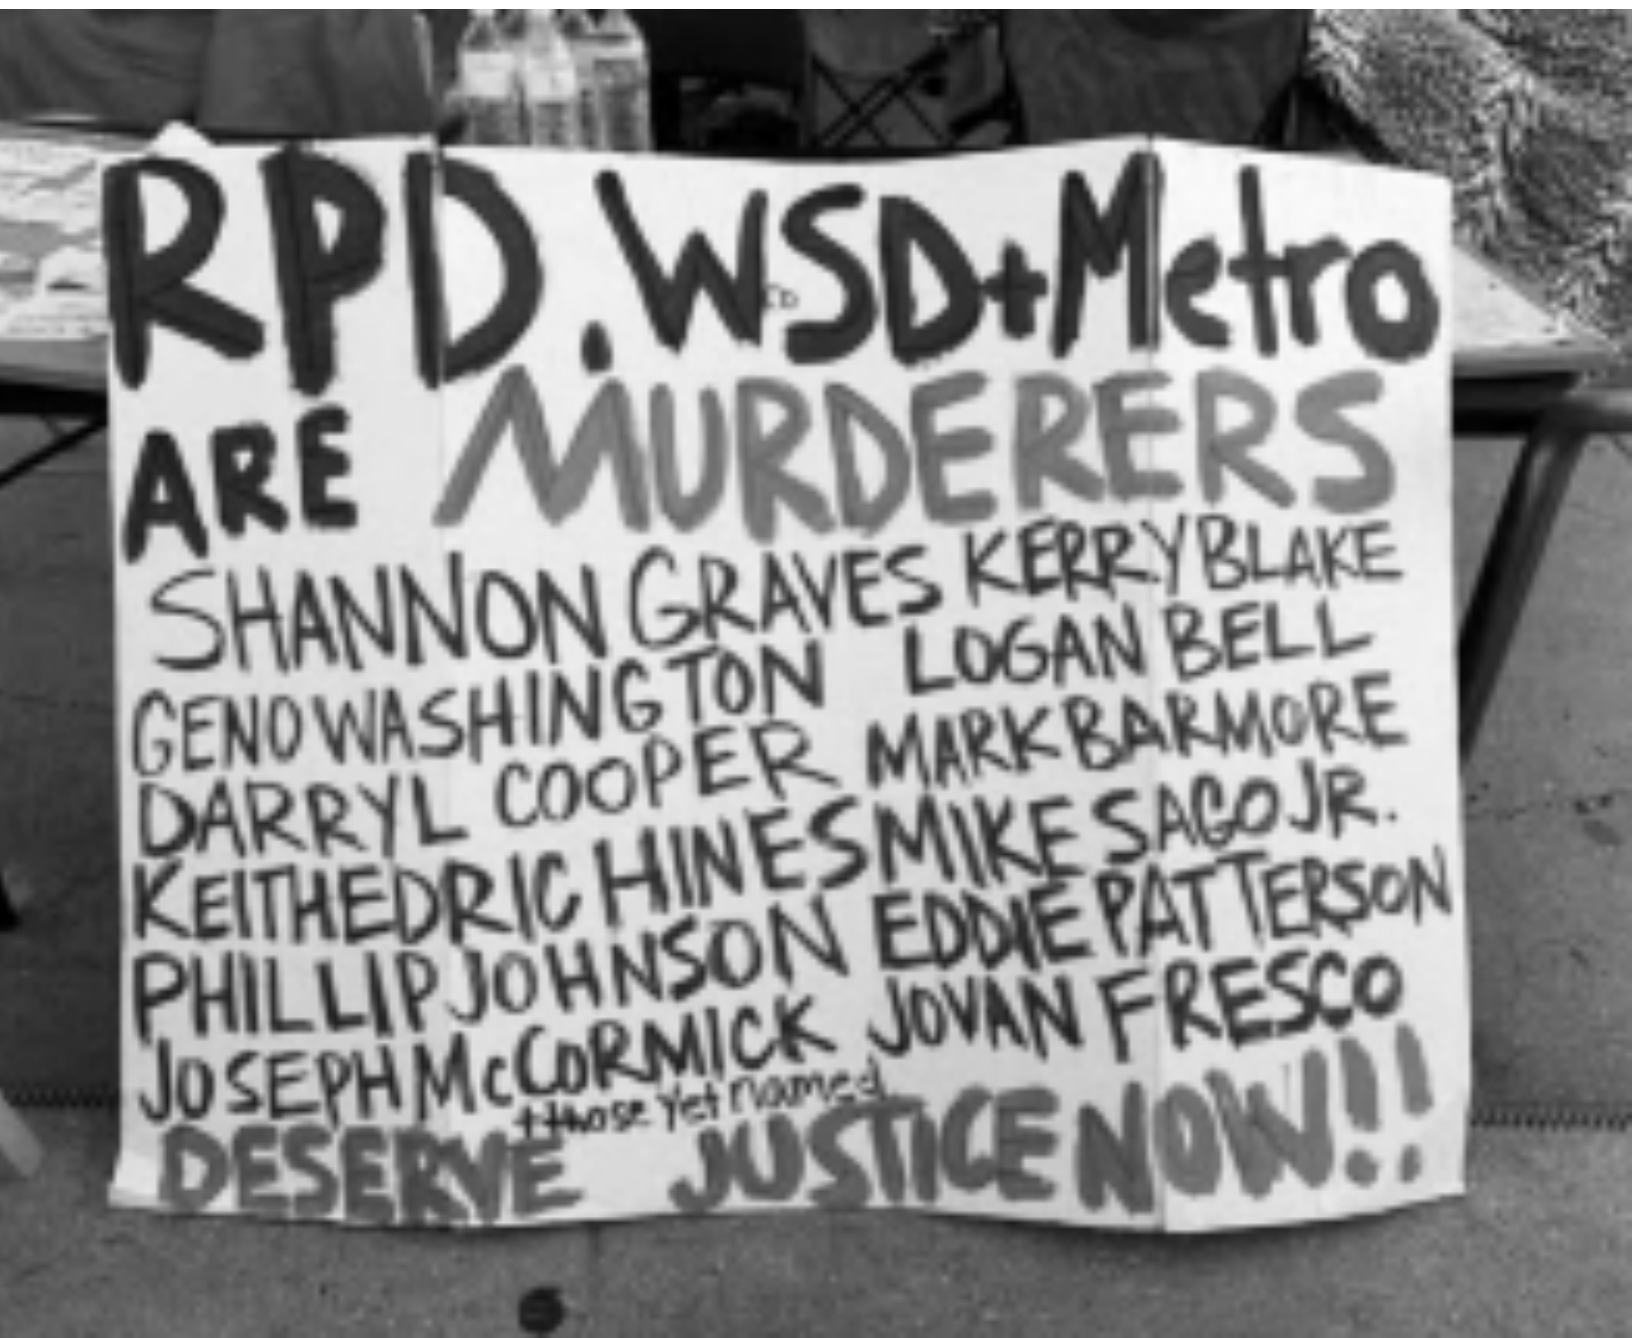 RPD. WSD + Metro
ARE MURDERERS
SHANNON GRAVES KERRY BLAKE
GENO WASHINGTON LOGAN BELL
DARRYL COOPER MARK BARMORE
KEITHEDRIC HINES MIKE SAGO JR.
PHILLIP JOHNSON EDDIE PATTERSON
JOSEPH McCORMICK JOVAN FRESCO
+ those yet named
DESERVE JUSTICE NOW!!